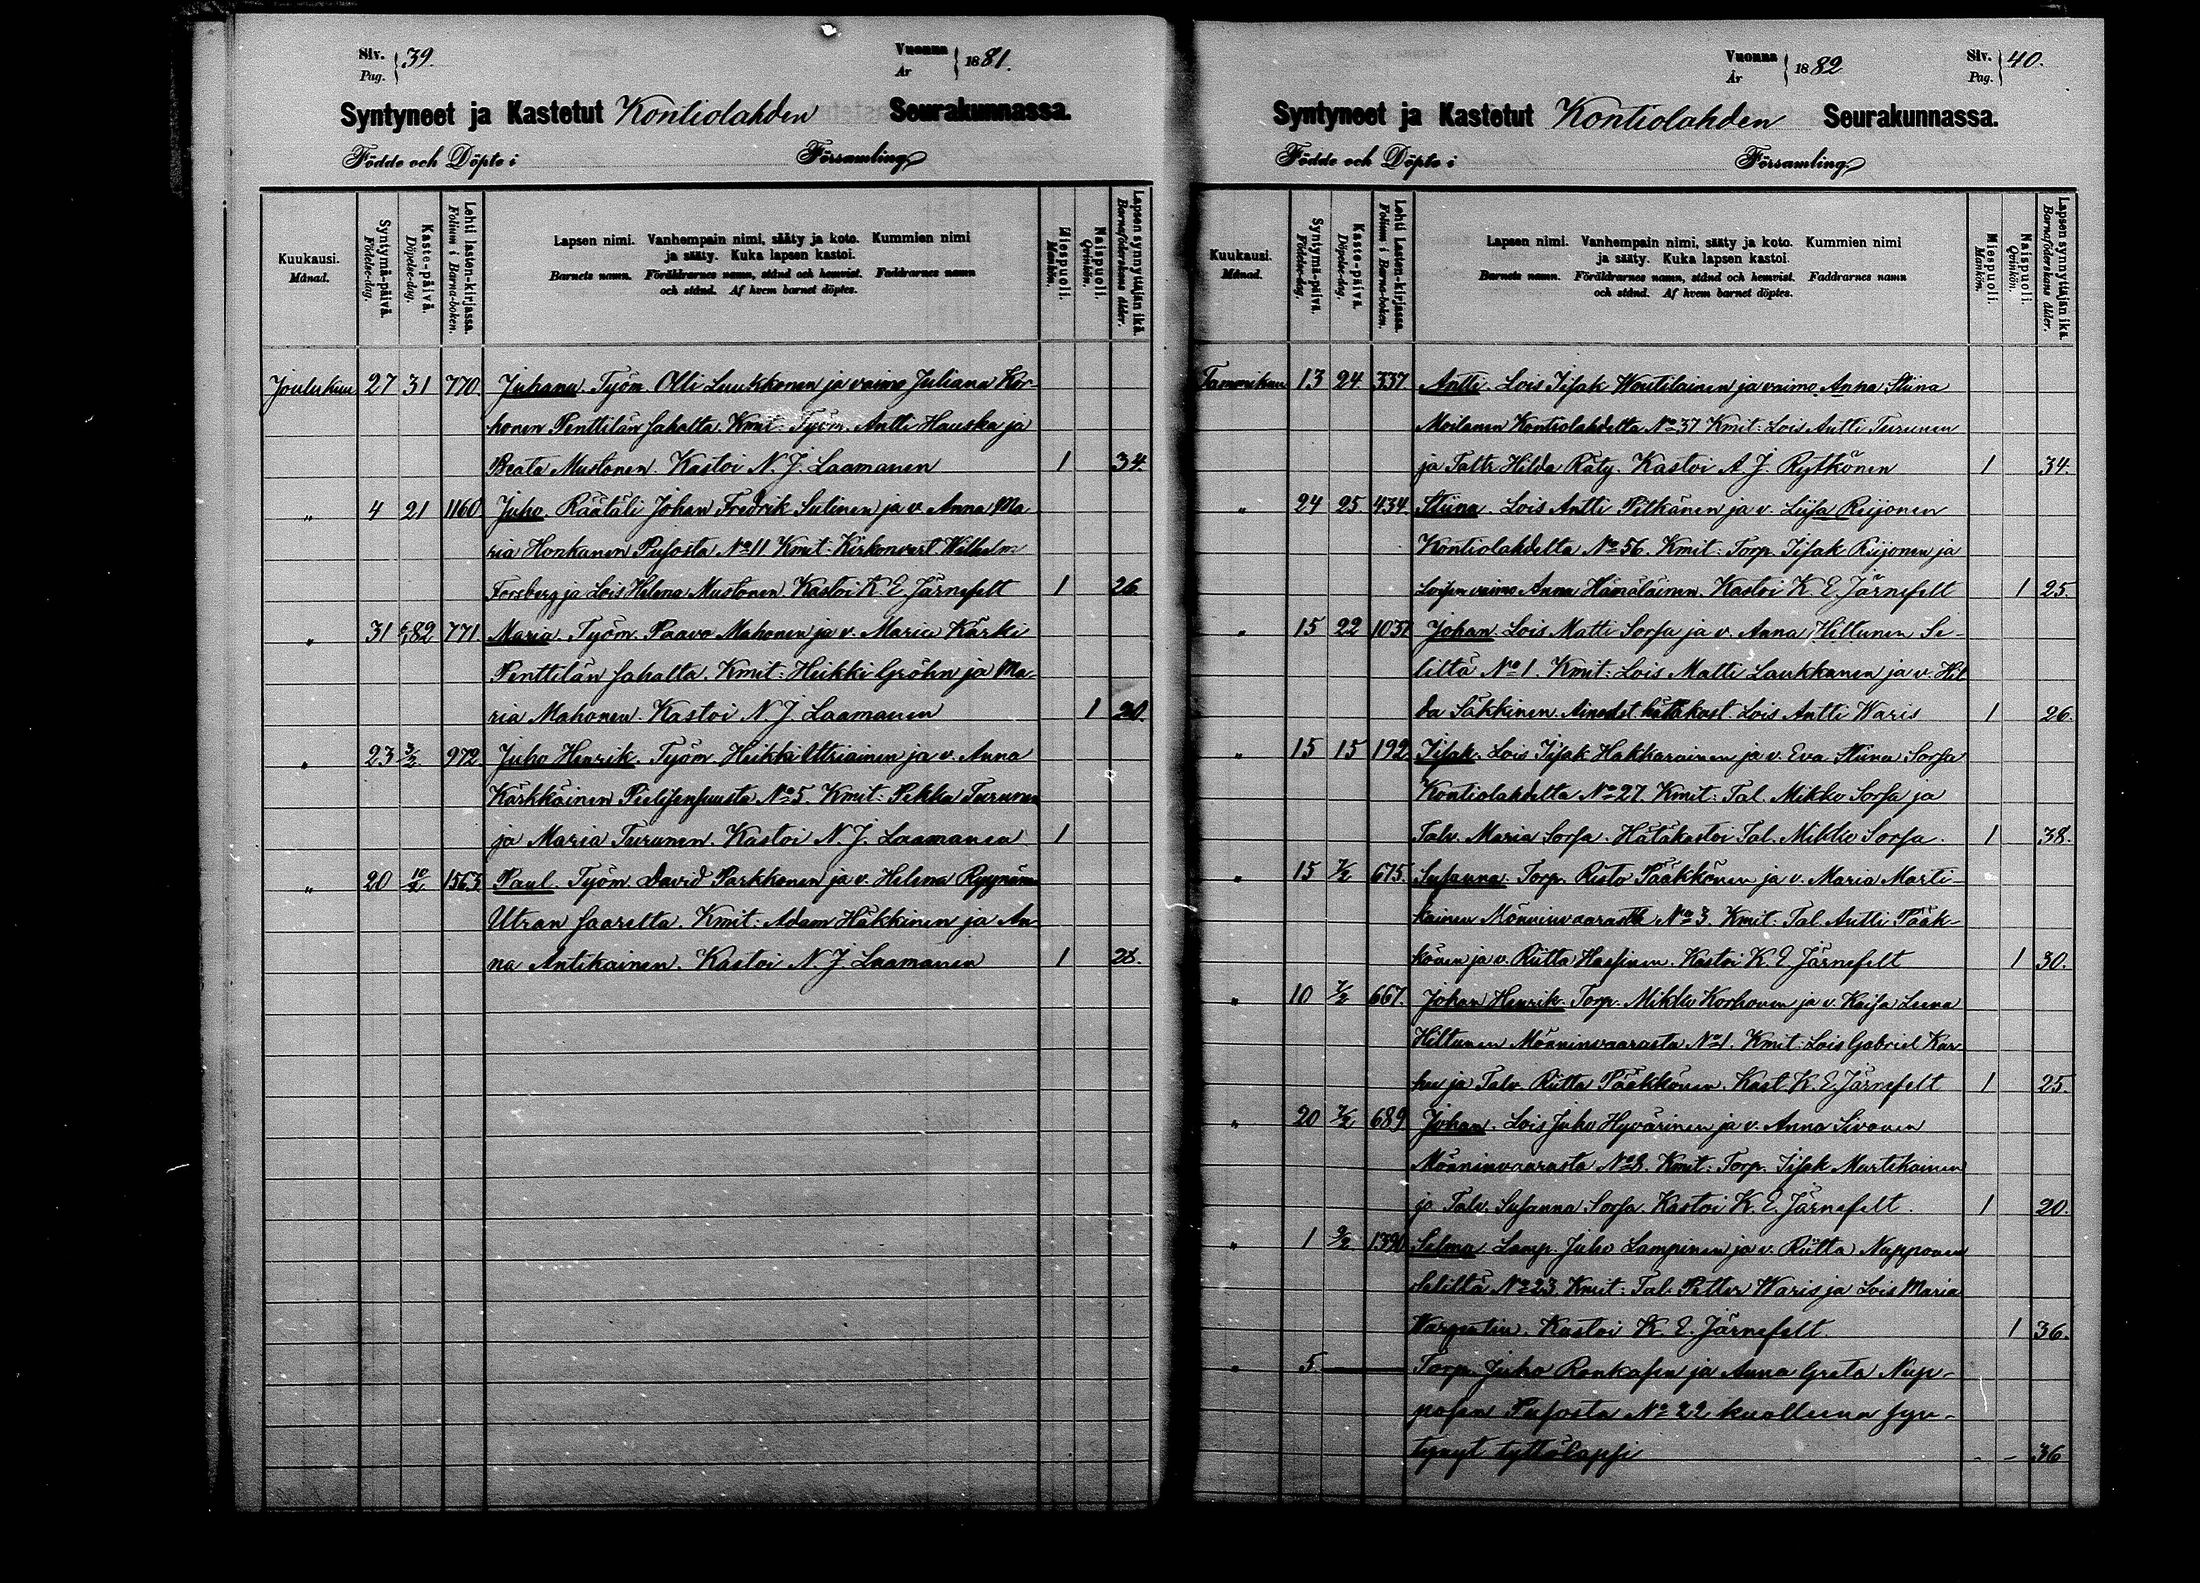 Siv. Pag. } 39.
Vuonna År } 1881.
Syntyneet ja Kastetut Kontiolahden Seurakunnassa.
Födde och Döpte i Församling
Kuukausi. Månad.
Syntymä-päivä. Födelse-dag.
Kaste-päivä. Döpelse-dag.
Lehti lasten-kirjassa. Folium i Barna-boken.
Lapsen nimi. Vanhempain nimi, sääty ja koto. Kummien nimi
ja sääty. Kuka lapsen kastoi.
Barnets namn. Föräldrarnes namn, stånd och hemvist. Faddrarnes namn
och stånd. Af hvem barnet döptes.
Miespuoli. Mankön.
Naispuoli. Qvinkön.
Lapsen synnyttäjän ikä. Barnaföderskans ålder.
Joulukuu 27 31 770. Juhana. Työm. Olli Luukkonen ja vaimo Juliana Kor-
honen Penttilän sahalta. Kmit: Työm. Antti Hauska ja
Beata Mustonen. Kastoi N. J. Laamanen 1 34.
" 4 21 1160 Juho. Räätäli Johan Fredrik Sutinen ja v. Anna Ma
ria Honkanen Pufosta No 11 Kmit: Kirkonvart Wilhelm
Forsberg ja Lois Helena Mustonen Kastoi K. E. Järnefelt 1 26
" 31 82 771. Maria Työm. Paavo Mahonen ja v. Maria Kärki
Penttilän sahalta. Kmit: Heikki Gröhn ja Ma-
ria Mahonen. Kastoi N. J. Laamanen 1 20.
" 23 3/2 972. Juho Henrik. Työm. Heikki Uttriainen ja v. Anna
Kärkkäinen Pielisensuusta No 5. Kmit: Pekka Turunen
ja Maria Turunen. Kastoi N. J. Laamanen 1
" 20 10/2 1563 Paul. Työm. David Parkkonen ja v. Helena Ryynänen
Utran saarelta. Kmit: Adam Häkkinen ja An-
na Antikainen. Kastoi N. J. Laamanen 1 28.
Vuonna År } 1882
Siv. Pag. } 40.
Syntyneet ja Kastetut Kontiolahden Seurakunnassa.
Födde och Döpte i Församling
Kuukausi. Månad.
Syntymä-päivä. Födelse-dag.
Kaste-päivä. Döpelse-dag.
Lehti lasten-kirjassa. Folium i Barna-boken.
Lapsen nimi. Vanhempain nimi, sääty ja koto. Kummien nimi
ja sääty. Kuka lapsen kastoi.
Barnets namn. Föräldrarnes namn, stånd och hemvist. Faddrarnes namn
och stånd. Af hvem barnet döptes.
Miespuoli. Mankön.
Naispuoli. Qvinkön.
Lapsen synnyttäjän ikä. Barnaföderskans ålder.
Tammikuu 13 24 337 Antti. Lois Iisak Woutilainen ja vaimo Anna Stiina
Moilanen Kontiolahdelta No 37 Kmit: Lois Antti Turunen
ja Taltr Hilda Räty. Kastoi A. J. Rytkönen 1 34.
" 24 25 434. Stiina. Lois Antti Pitkänen ja v. Liisa Riijonen
Kontiolahdelta No 56. Kmit: Torp. Iisak Riijonen ja
Loisen vaimo Anna Hämäläinen. Kastoi K. E. Järnefelt 1 25.
" 15 22 1037 Johan. Lois Matti Sorsa ja v. Anna Hiltunen Se-
liltä No 1. Kmit: Lois Matti Laukkanen ja v. Hil
da Säkkinen. hätäkast. Lois Antti Waris 1 26.
" 15 15 192 Iisak. Lois Iisak Hakkarainen ja v. Eva Stiina Sorsa
Kontiolahdelta No 27. Kmit: Tal. Mikko Sorsa ja
Talv. Maria Sorsa. Hätäkastoi Tal. Mikko Sorsa. 1 38.
" 15 7/2 675. Susanna. Torp. Risto Pääkkönen ja v. Maria Marti-
kainen Mönninvaarasta No 3. Kmit: Tal. Antti Pääk-
könen ja v. Riitta Hassinen. Kastoi K. E. Järnefelt 1 30.
" 10 7/2 667. Johan Henrik. Torp. Mikko Korhonen ja v. Kaisa Leena
Hiltunen Mönninvaarasta No 1. Kmit: Lois Gabriel Kar-
hu ja Talv. Riitta Pääkkönen. Kast K. E. Järnefelt 1 25.
" 20 7/2 689 Johan. Lois Juho Hyvärinen ja v. Anna Sivonen
Mönninvaarasta No 8. Kmit: Torp. Iisak Martikainen
ja Talv. Susanna Sorsa. Kastoi K. E. Järnefelt. 1 20.
" 1 9/2 1390 Selma. Lamp. Juho Lampinen ja v. Riitta Nupponen
Seliltä No 23. Kmit: Tal. Petter Waris ja Lois Maria
Warpentin. Kastoi K. E. Järnefelt 1 36.
" 5. Torp Juho Ronkasen ja Anna Greta Nup-
posen Pufosta No 22 kuolleena syn-
tynyt tyttölapsi - - 36